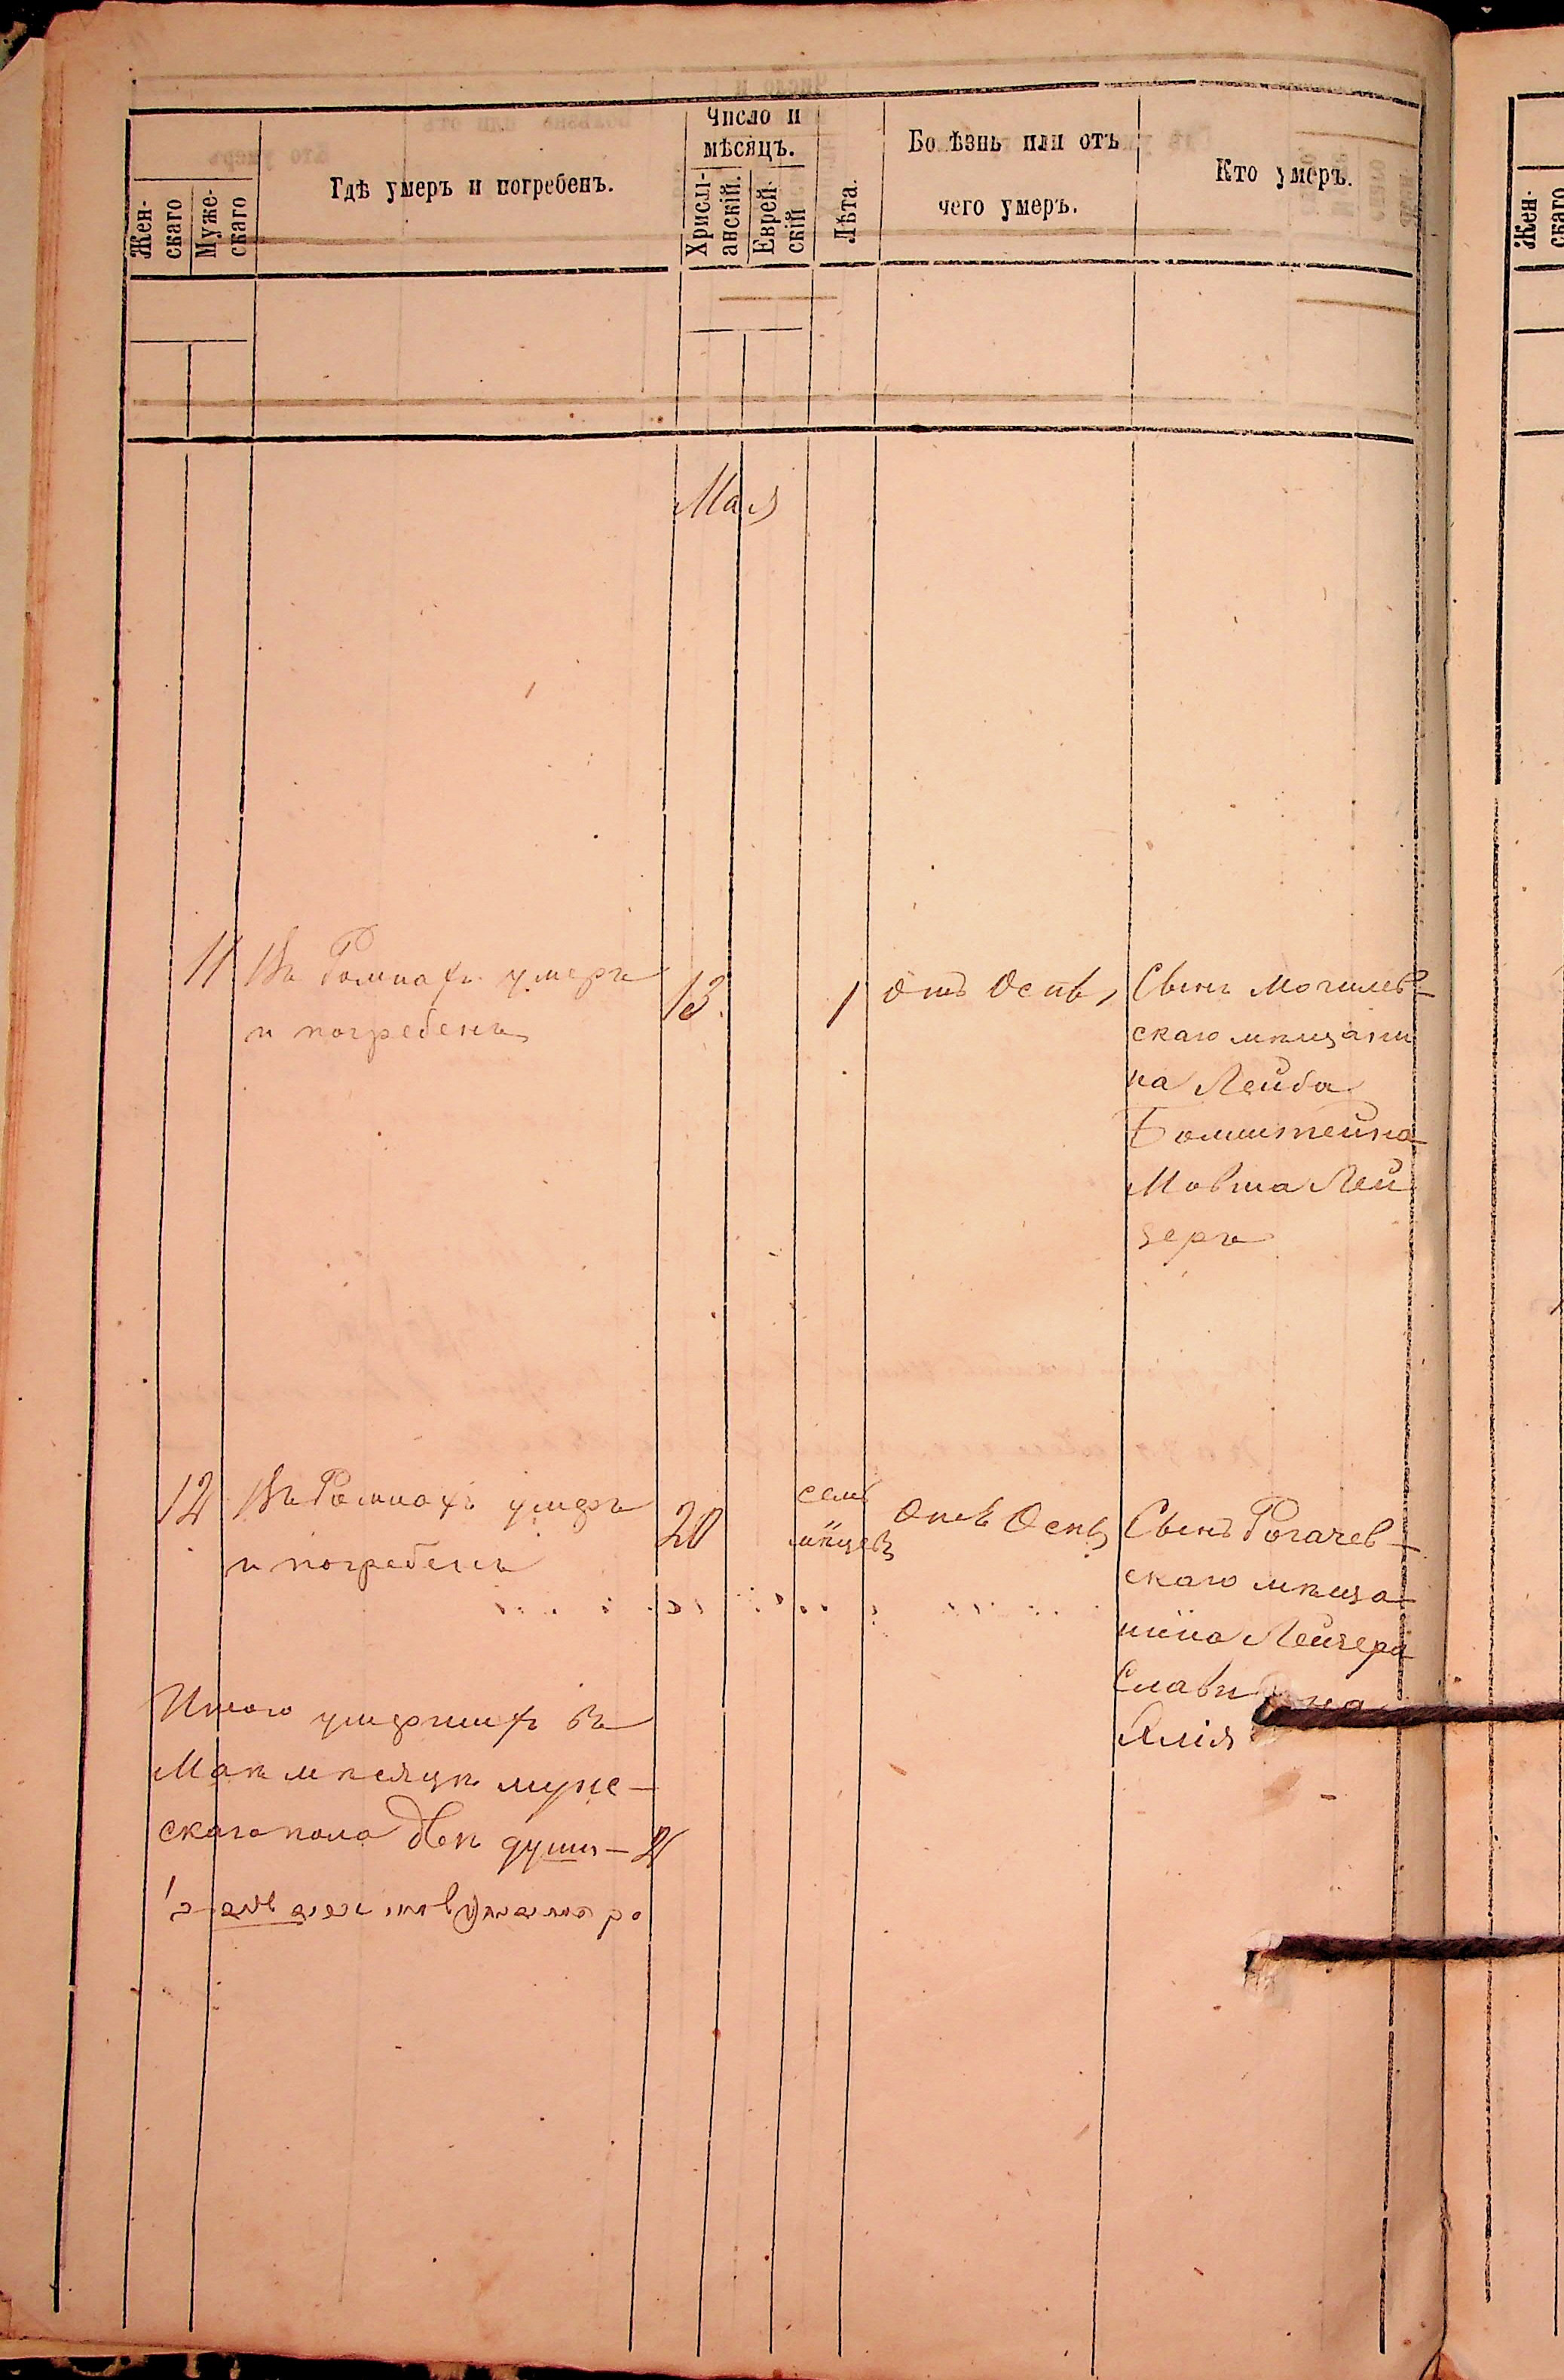 Жен-
скаго
Муже-
скаго
Гдѣ умеръ и погребенъ.
Число и
мѣсяцъ.
Хрисlі-
анскій.
Еврей-
скій
Лѣта.
Болѣзнь или отъ
чего умеръ.
Кто умеръ.
Жен-
скаго
Мая
11 Въ Ромнахъ умеръ
и погребенъ
13.
1
Отъ Оспы
Сынъ Могилев-
скаго мѣщани
на Лейба
Бомштейна
Мовша Лей
зеръ
12 Въ Ромнахъ умеръ
и погребенъ
20
семь
мѣцевъ
Отъ Оспы
Сынъ Рогачев-
скаго мѣща
нина Лейзера
Слави на
Итого умершихъ въ
Маѣ мѣсяцѣ муже-
скаго пола двѣ души - 2